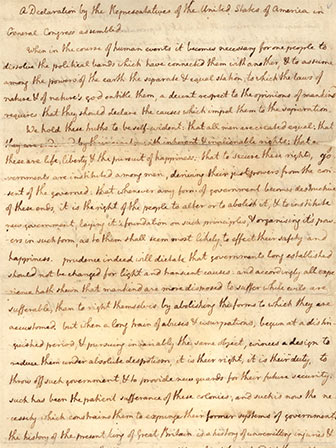 A Declaration by the Representatives of the United States of America in
General Congress assembled.
When in the course of human events it becomes necessary for one people to
dissolve the political bands which have connected them with another, & to assume
among the powers of the earth the separate & equal station, to which the laws of
nature & of nature's god entitle them, a decent respect to the opinions of mankind
requires that they should declare the causes which impel them to the separation.
We hold these truths to be self-evident: that all men are created equal; that
they are endowed by their with inherent & inalienable rights; that
these are life, liberty, & the pursuit of happiness: that to secure these rights, go-
vernments are instituted among men, deriving their just powers from the con-
sent of the governed: that whenever any form of government becomes destructive
of these ends, it is the right of the people to alter or to abolish it, & to institute
new government, laying it's foundation on such principles, & organising it's pow-
ers in such form, as to them shall seem most likely to effect their safety and
happiness. prudence indeed will dictate that governments long established
should not be changed for light and transient causes: and accordingly all expe-
rience hath shewn that mankind are more disposed to suffer while evils are
sufferable, than to right themselves by abolishing the forms to which they are
accustomed. but when a long train of abuses & usurpations, begun at a distin-
guished period & pursuing invariably the same object, evinces a design to
reduce them under absolute despotism, it is their right, it is their duty, to
throw off such government, & to provide new guards for their future security.
such has been the patient sufferance of these colonies; and such is now the ne-
cessity which constrains them to expunge their former systems of government.
the history of the present king of Great Britain is a history of unremitting injuries &